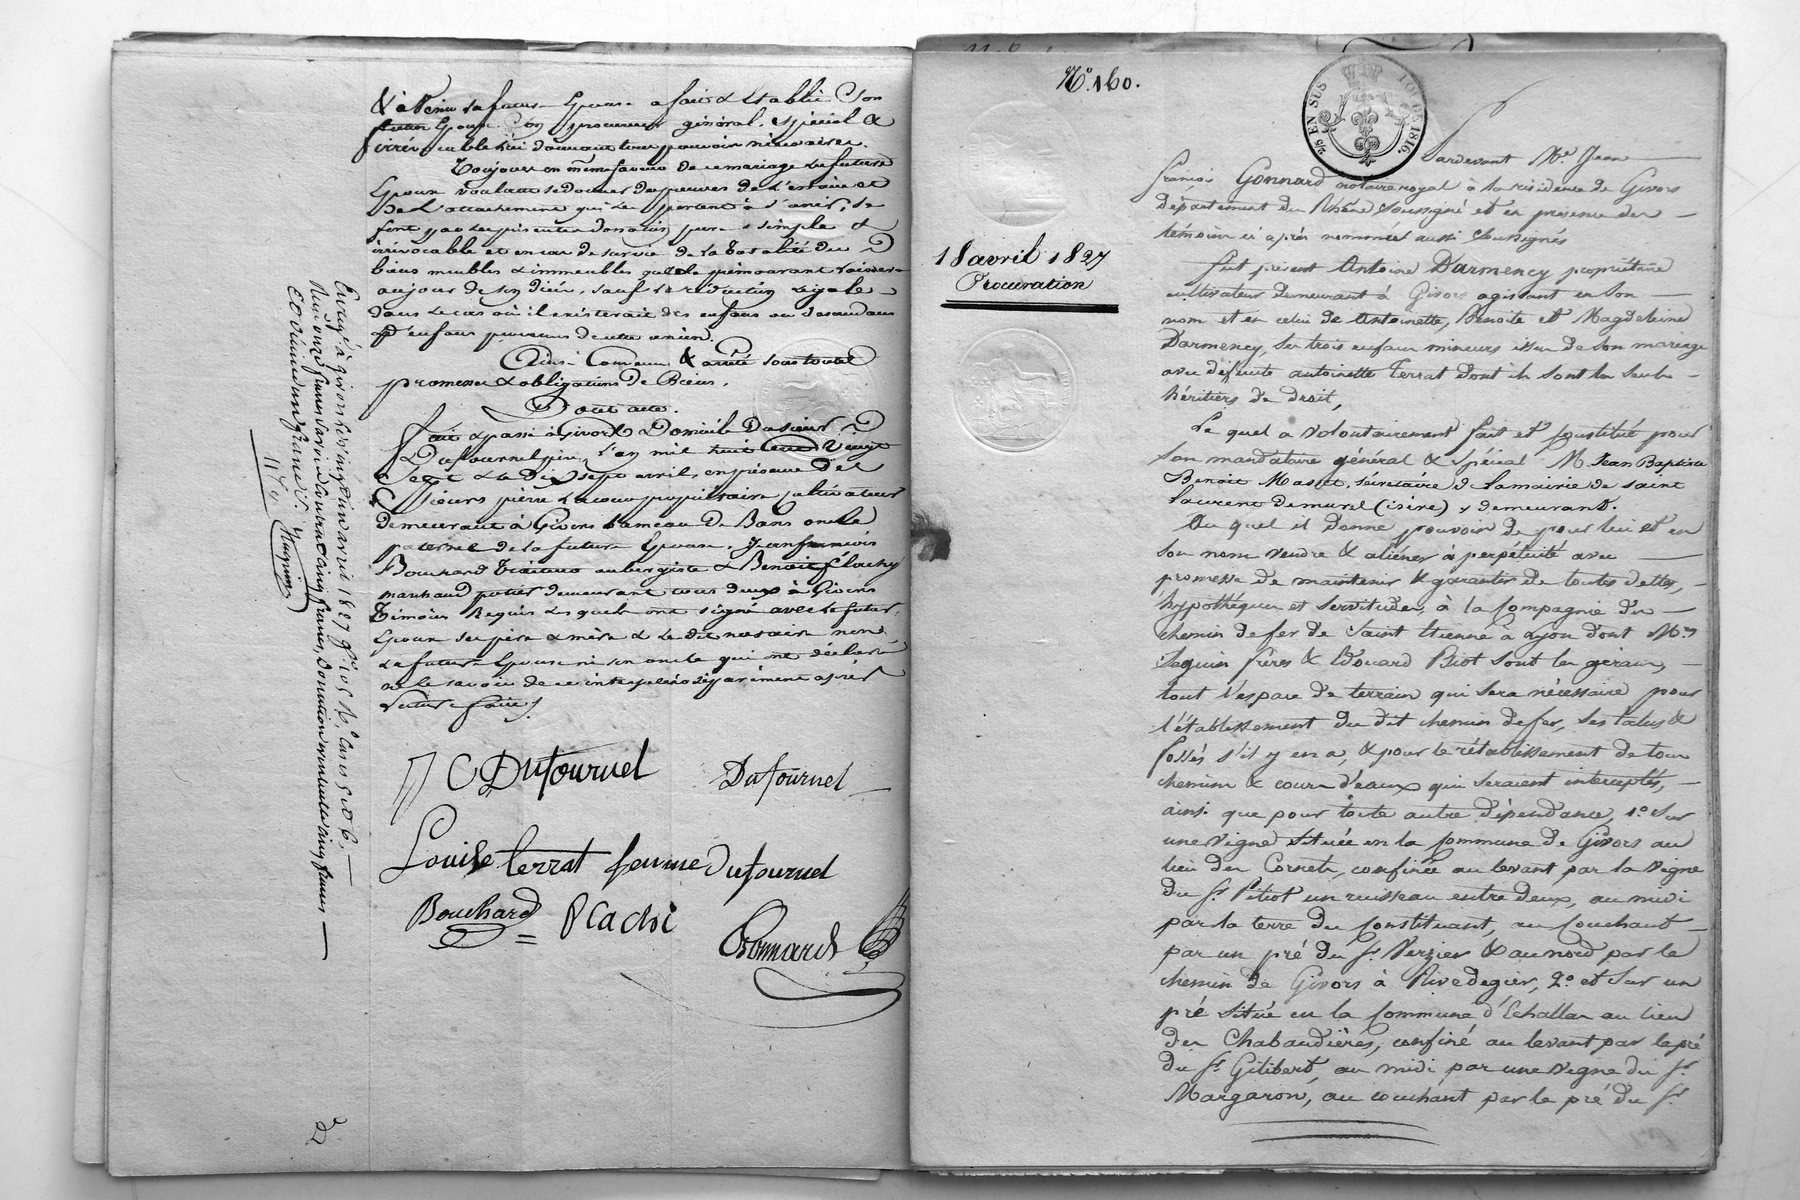 & à venir la future Epouse a fait & établi Son
futur Epoux Son procureur général, spécial &
irrévocable lui donnant tous pouvoirs nécessaires.
Toujours en même faveur de ce mariage les futurs
Epoux voulant se donner des preuves de l'estime et
De L'attachement qu'ils se portent à l'envi, se
font par les présentes donation pure & simple &
irrévocable et en cas de survie de la totalité des
biens meubles & immeubles que le prémourant laissera
au jour de son décès, sauf la réduction légale
dans le cas où il existerait des enfans ou descendans
d'enfans provenus de cette union.
Ainsi Convenu & arrêté sous toutes
promesses & obligations De Biens.
Dont acte.
Fait & passé à Givors Domicile Du sieur
Dufournel père, L'an mil huit cent vingt
Sept & Le Dix sept avril, en présence des
Sieurs pierre propriétaire cultivateur
demeurant à Givors hameau De Bans oncle
paternel de la future Epouse, Jean françois
Bouchard aubergiste & Benoit
marchand potier demeurant tous deux à Givors
témoins Requis Lesquels ont signé avec le futur
Epoux ses père & mère & Le dit notaire non
La future Epouse ni son oncle qui ont déclaré
ne le savoir de ce interpellés séparément après
Lecture faite.
C Dufournel Dufournel
Louise terrat femme Dufournel
Bouchard
Gonnard
Enregé à givors le vingt un avril 1827 fo
Reçu onze francs
et
N.o 160.
25. EN SUS
1816.
18 avril 1827
Procuration
Pardevant Me. Jean
françois Gonnard notaire royal à la résidence de Givors
Département du Rhône soussigné et en présence des
témoins ci après nommés aussi soussignés
fut présent Antoine Darmency propriétaire
cultivateur demeurant à Givors agissant en Son
nom et en celui de Antoinette, Benoite et Magdeleine
Darmency, ses trois enfans mineurs issus de son mariage
avec défunte antoinette Terrat dont ils sont les seules
héritiers de droit,
Le quel a volontairement fait et constitué pour
son mandataire général & spécial M. Jean Baptiste
Benoit Massot, sécrétaire de la mairie de saint
laurent demurel (isère) y demeurant.
Au quel il donne pouvoir de pour lui et en
son nom vendre & aliéner à perpétuité avec
promesse de maintenir & garantir de toutes dettes,
hypothéques et servitudes, à la Compagnie du
chemin de fer de Saint Etienne à Lyon dont Mrs
Seguin frères & Edouard Biot sont les gérans,
tout l'espace de terrain qui sera nécessaire pour
l'établissement du dit chemin de fer, ses talus &
fossés s'il y en a, & pour le rétablissement de tous
chemins & cours d'eaux qui seraient interceptés,
ainsi que pour toute autre dépendance, 1.o sur
une vigne située en la Commune de Givors au
lieu des Cornets, confinée au levant par la vigne
du Sr. Pitiot un ruisseau entre deux, au midi
par la terre du Constituant, au Couchant
par un pré du Sr. Verzier & au nord par le
chemin de Givors à Rivedegier, 2.o et sur un
pré situé en la Commune d'Echallas au lieu
des Chabaudières, confiné au levant par le pré
du Sr. Gilibert, au midi par une vigne du Sr.
Margaron, au couchant par le pré du Sr.